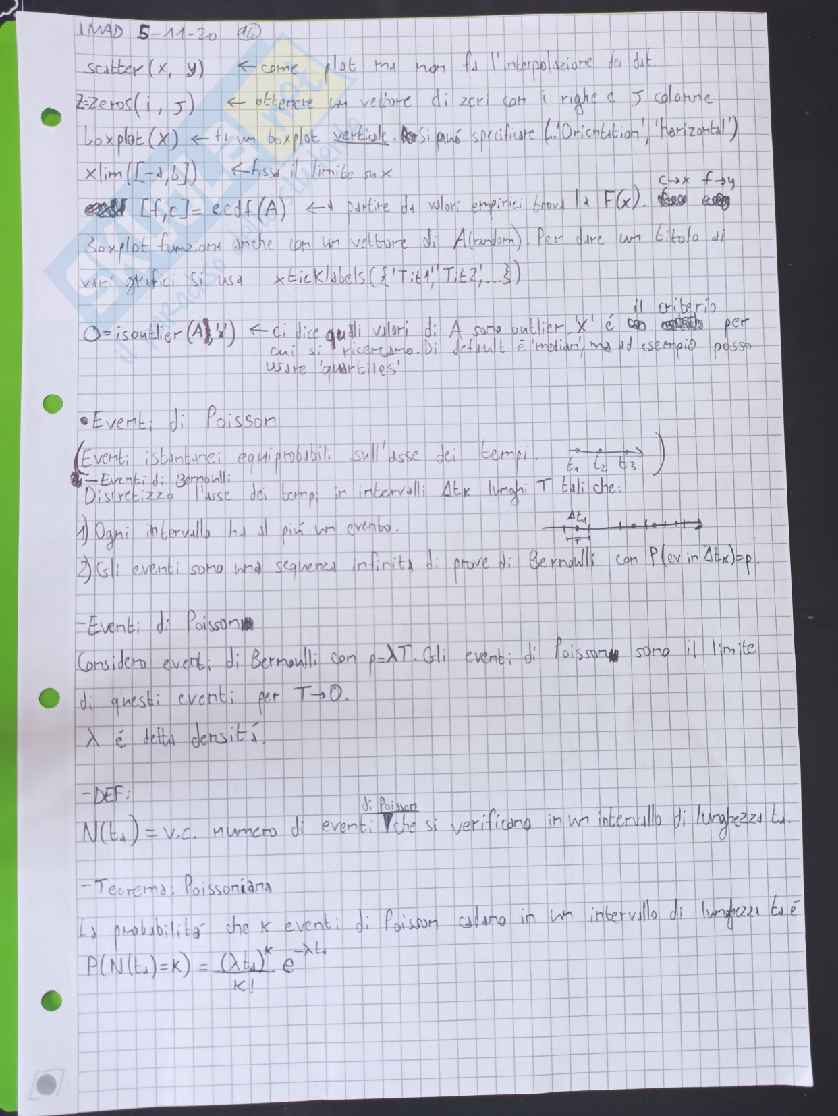 IMAD 5-11-20
scatter(x, y) ← come plot ma non fa l'interpolazione dei dati
Z=zeros(i, j) ← ottenere un vettore di zeri con i righe e j colonne
boxplot(x) ← fa un boxplot verticale. Si può specificare (..'Orientation', 'horizontal')
xlim([-a,b]) ← fissa il limite su x
[f,c]=ecdf(A) ← a partire da valori empirici trova la F(x). c→x f→y
Boxplot funziona anche con un vettore di A(random). Per dare un titolo ai
vari grafici si usa xticklabels({'Tit1','Tit2',...})
O=isoutlier(A,'X') ← ci dice quali valori di A sono outlier. 'X' é il criterio per
cui si ricercano. Di default é 'median', ma ad esempio posso
usare 'quartiles'
•Eventi di Poisson
(Eventi istantanei equiprobabili sull'asse dei tempi. t1 t2 t3)
-Eventi di Bernoulli
Discretizzo l'asse dei tempi in intervalli Δtk lunghi T tali che:
1) Ogni intervallo ha al più un evento. Δt1 T
2) Gli eventi sono una sequenza infinita di prove di Bernoulli con P(ev in Δtk)=p
-Eventi di Poisson
Considero eventi di Bernoulli con p=λT. Gli eventi di Poisson sono il limite
di questi eventi per T→0.
λ é detta densitá.
-DEF:
N(ta) = v.c. numero di eventi di Poisson che si verificano in un intervallo di lunghezza ta.
-Teorema: Poissoniana
La probabilitá che k eventi di Poisson cadano in un intervallo di lunghezza ta é
P(N(ta)=k) = (λta)^k/k! e^-λta